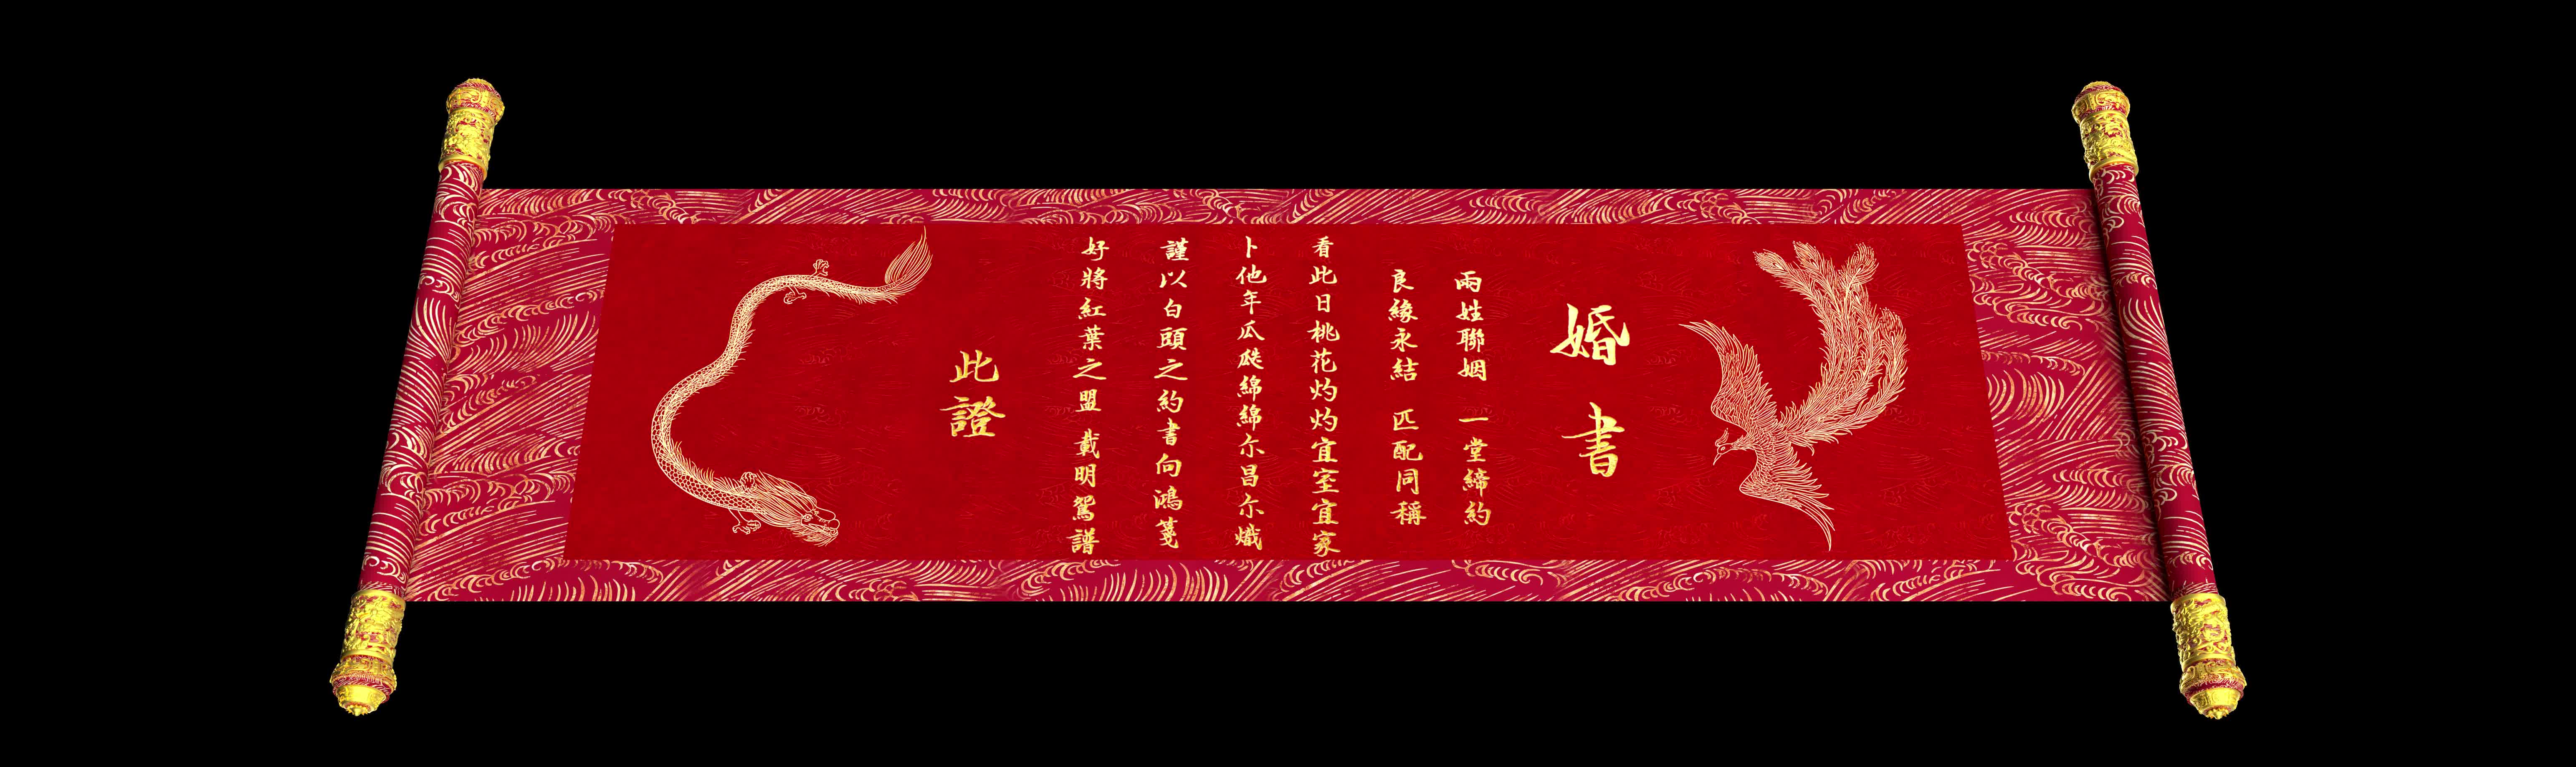 婚書
兩姓聯姻 一堂締約
良緣永結 匹配同稱
看此日桃花灼灼宜室宜家
卜他年瓜瓞綿綿尓昌尓熾
謹以白頭之約書向鴻箋
好將紅葉之盟 載明鴛譜
此證